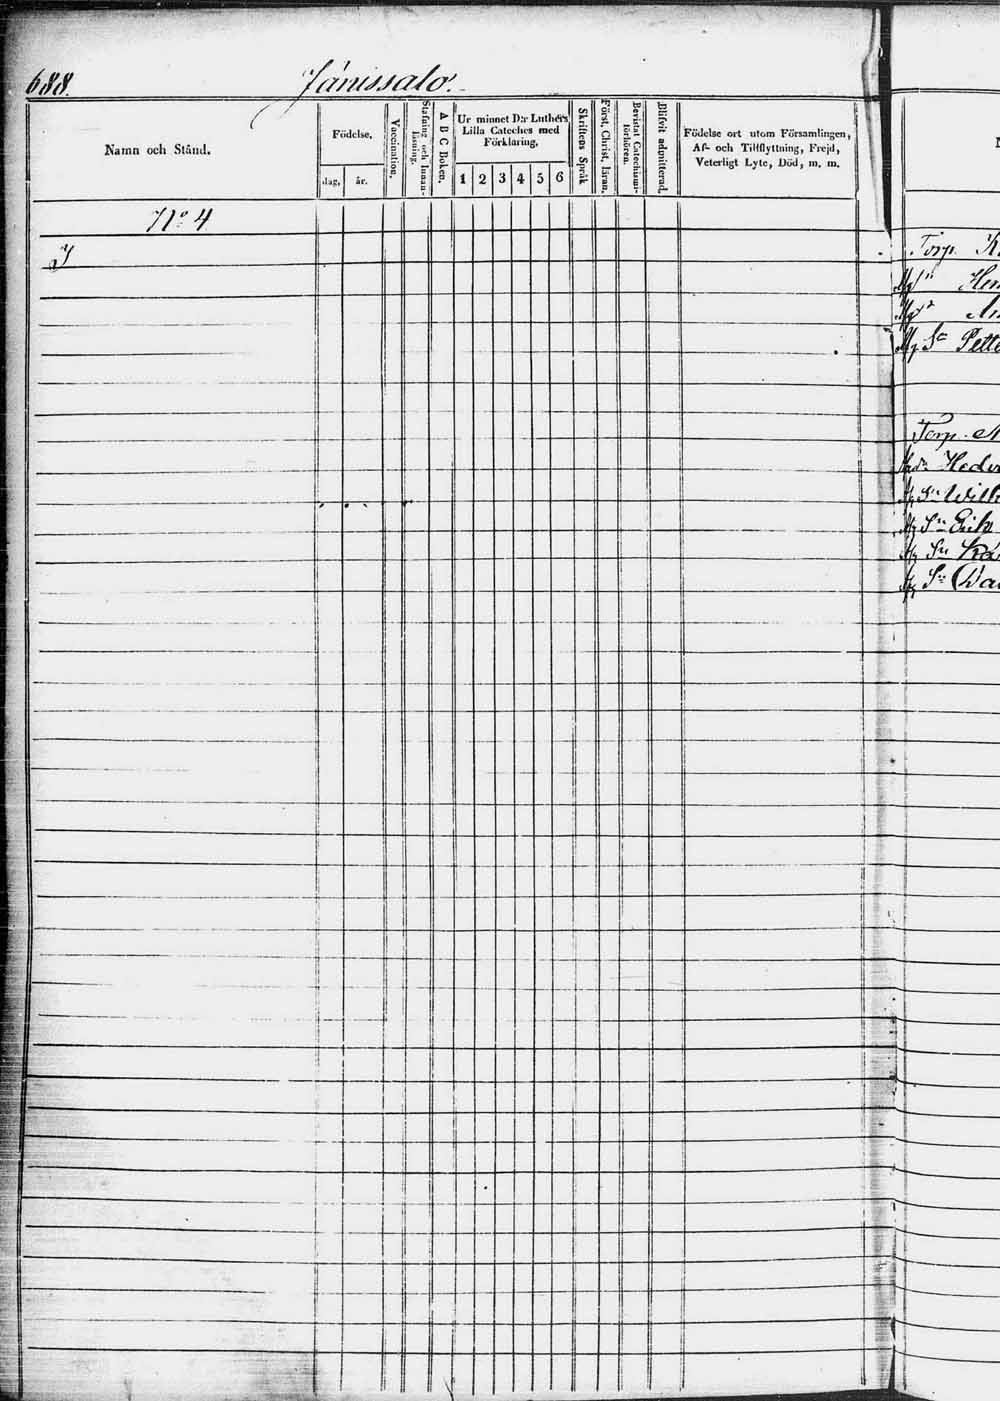 688.
Jänissalo.
Namn och Stånd.
Födelse,
dag,
år.
Vaccination.
Stafning och Innan-
läsning.
A B C Boken.
Ur minnet D:r Luthers
Lilla Cateches med
Förklaring,
1 2 3 4 5 6
Skriftens Språk
Först. Christ. läran.
Bevistat Catechismi-
förhören.
Blifvit admitterad.
Födelse ort utom Församlingen,
Af- och Tillflyttning, Frejd,
Veterligt Lyte, Död, m. m.
N:o 4
Torp.
Pette
Torp.
Hedv
Sn Wilh
Sn Erik
Sn
Sn